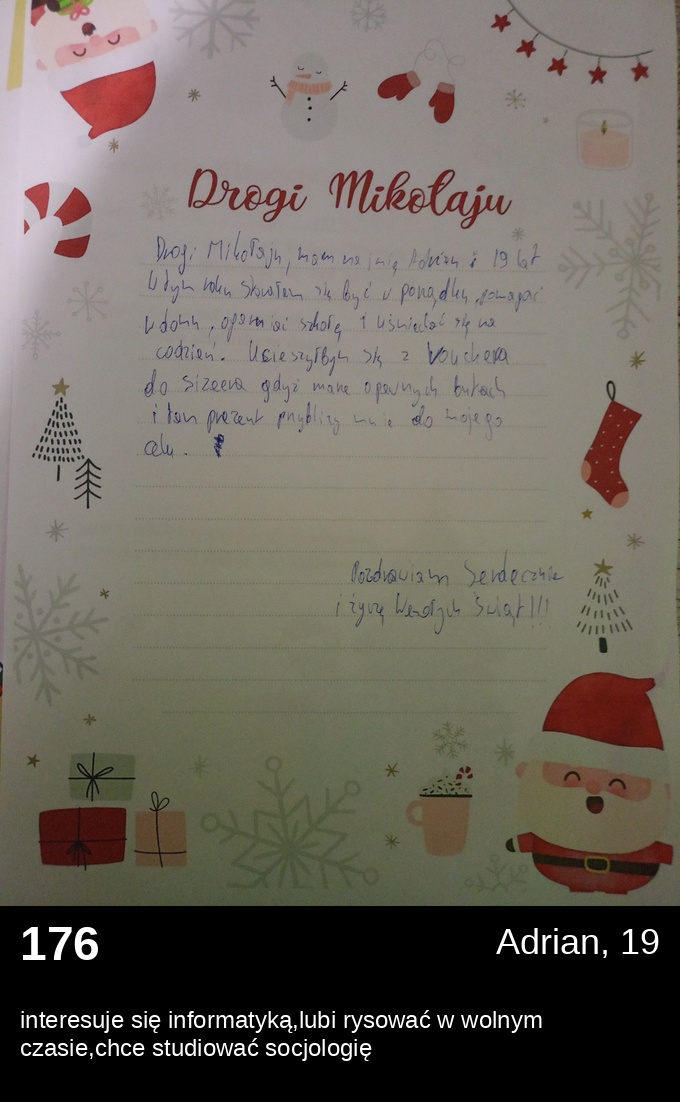 Drogi Mikołaju
Drogi Mikołaju, mam na imię Adrian i 19 lat
W tym roku starałem się być w porządku, pomagać
w domu, ogarniać szkołę i uśmiechać się na
codzień. Ucieszyłbym się z Vouchera
do sizeera gdyż marzę o pewnych butach
i ten prezent przybliży mnie do mojego
celu.
Pozdrawiam Serdecznie
i życzę Wesołych Świąt!!!
176
Adrian, 19
interesuje się informatyką,lubi rysować w wolnym
czasie,chce studiować socjologię